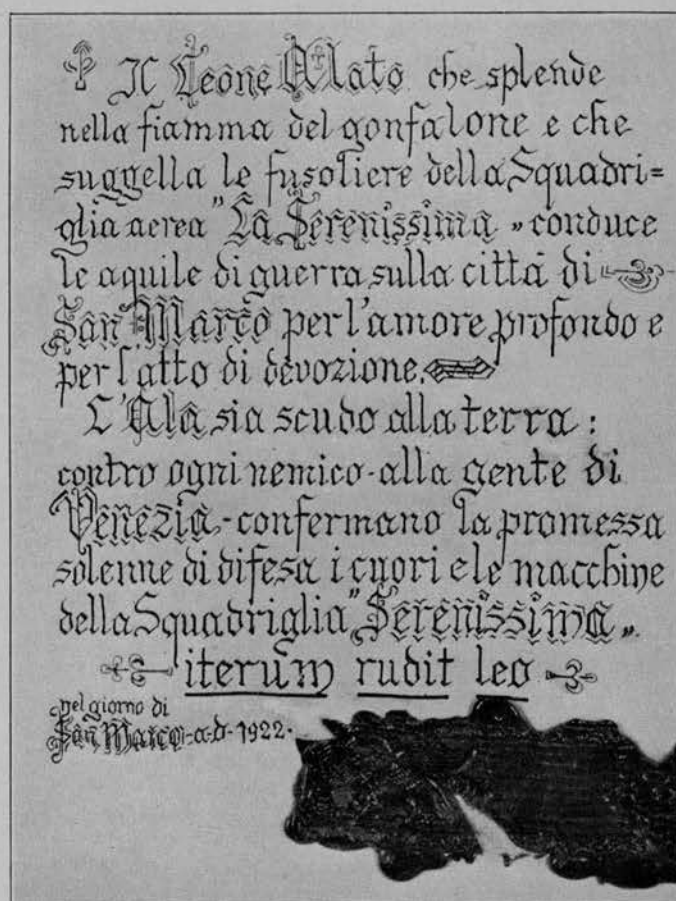 Il Leone Alato che splende
nella fiamma del gonfalone e che
suggella le fusoliere della Squadri=
glia aerea "La Serenissima" conduce
le aquile di guerra sulla città di
San Marco per l'amore profondo e
per l'atto di devozione.
L'Ala sia scudo alla terra:
contro ogni nemico - alla gente di
Venezia - confermano la promessa
solenne di difesa i cuori e le macchine
della Squadriglia "Serenissima".
iterum rudit leo
nel giorno di
San Marco - a - d - 1922.